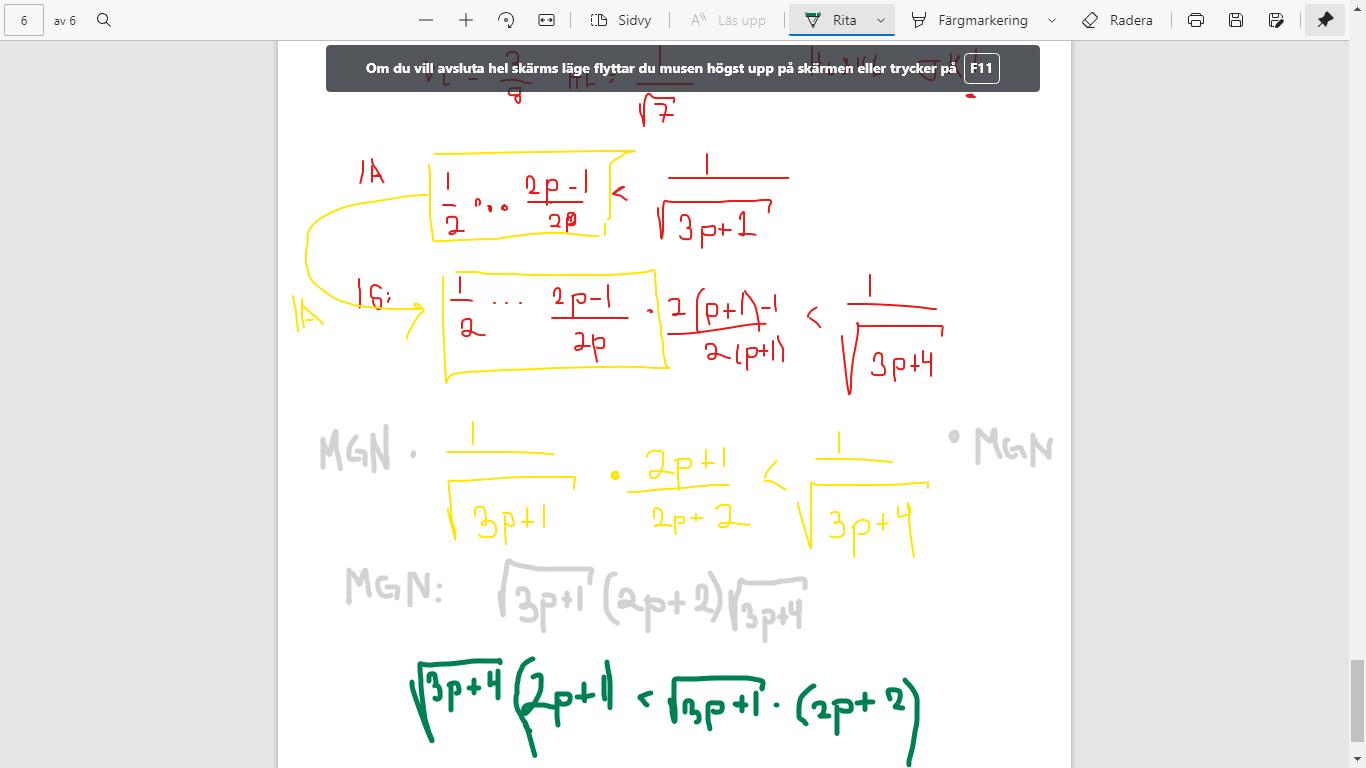 6 av 6 Sidvy Läs upp Rita Färgmarkering Radera
Om du vill avsluta hel skärms läge flyttar du musen högst upp på skärmen eller trycker på F11
√7
IA 1/2 ... (2p-1)/2p < 1/√(3p+1)
IA IG: 1/2 ... (2p-1)/2p · (2(p+1)-1)/(2(p+1)) < 1/√(3p+4)
MGN · 1/√(3p+1) · (2p+1)/(2p+2) < 1/√(3p+4) · MGN
MGN: √(3p+1) (2p+2) √(3p+4)
√(3p+4) (2p+1) < √(3p+1) · (2p+2)